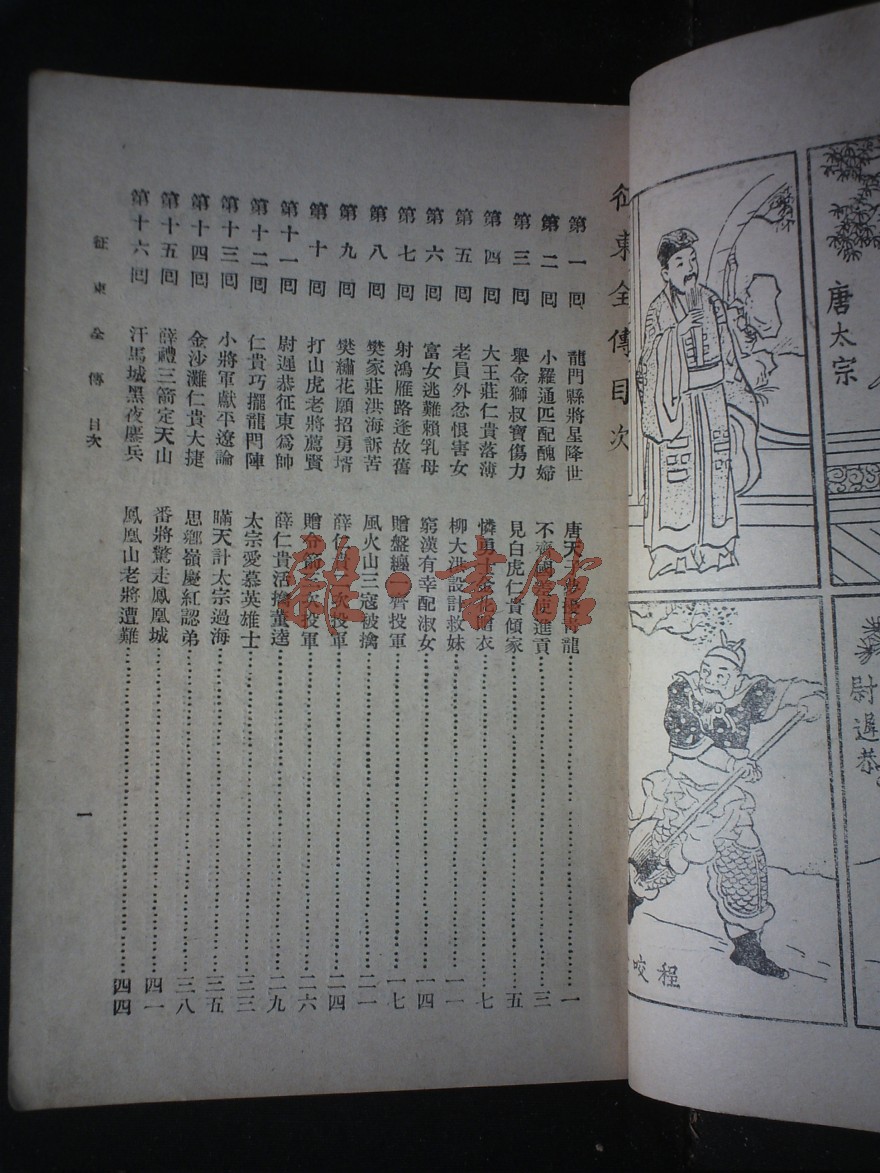 唐太宗
尉遲恭
程咬
征東全傳目次
第一回 龍門縣將星降世 唐天子夢擾青龍 一
第二回 小羅通匹配醜婦 不齊國差使進貢 三
第三回 舉金獅叔寶傷力 見白虎仁貴傾家 五
第四回 大王莊仁貴落薄 憐勇士金花贈衣 七
第五回 老員外忿恨害女 柳大洪設計救妹 一一
第六回 富女逃難賴乳母 窮漢有幸配淑女 一四
第七回 射鴻雁路逢故舊 贈盤纏一齊投軍 一七
第八回 樊家莊洪海訴苦 風火山三寇被擒 二一
第九回 樊繡花願招勇壻 薛仁貴二次投軍 二四
第十回 打山虎老將薦賢 贈令箭三次投軍 二六
第十一回 尉遲恭征東爲帥 薛仁貴活擒董逵 二九
第十二回 仁貴巧擺龍門陣 太宗愛慕英雄士 三三
第十三回 小將軍獻平遼論 瞞天計太宗過海 三五
第十四回 金沙灘仁貴大捷 思鄉嶺慶紅認弟 三八
第十五回 薛禮三箭定天山 番將驚走鳳凰城 四一
第十六回 汗馬城黑夜鏖兵 鳳凰山老將遭難 四四
征東全傳 目次
一
龍·書館